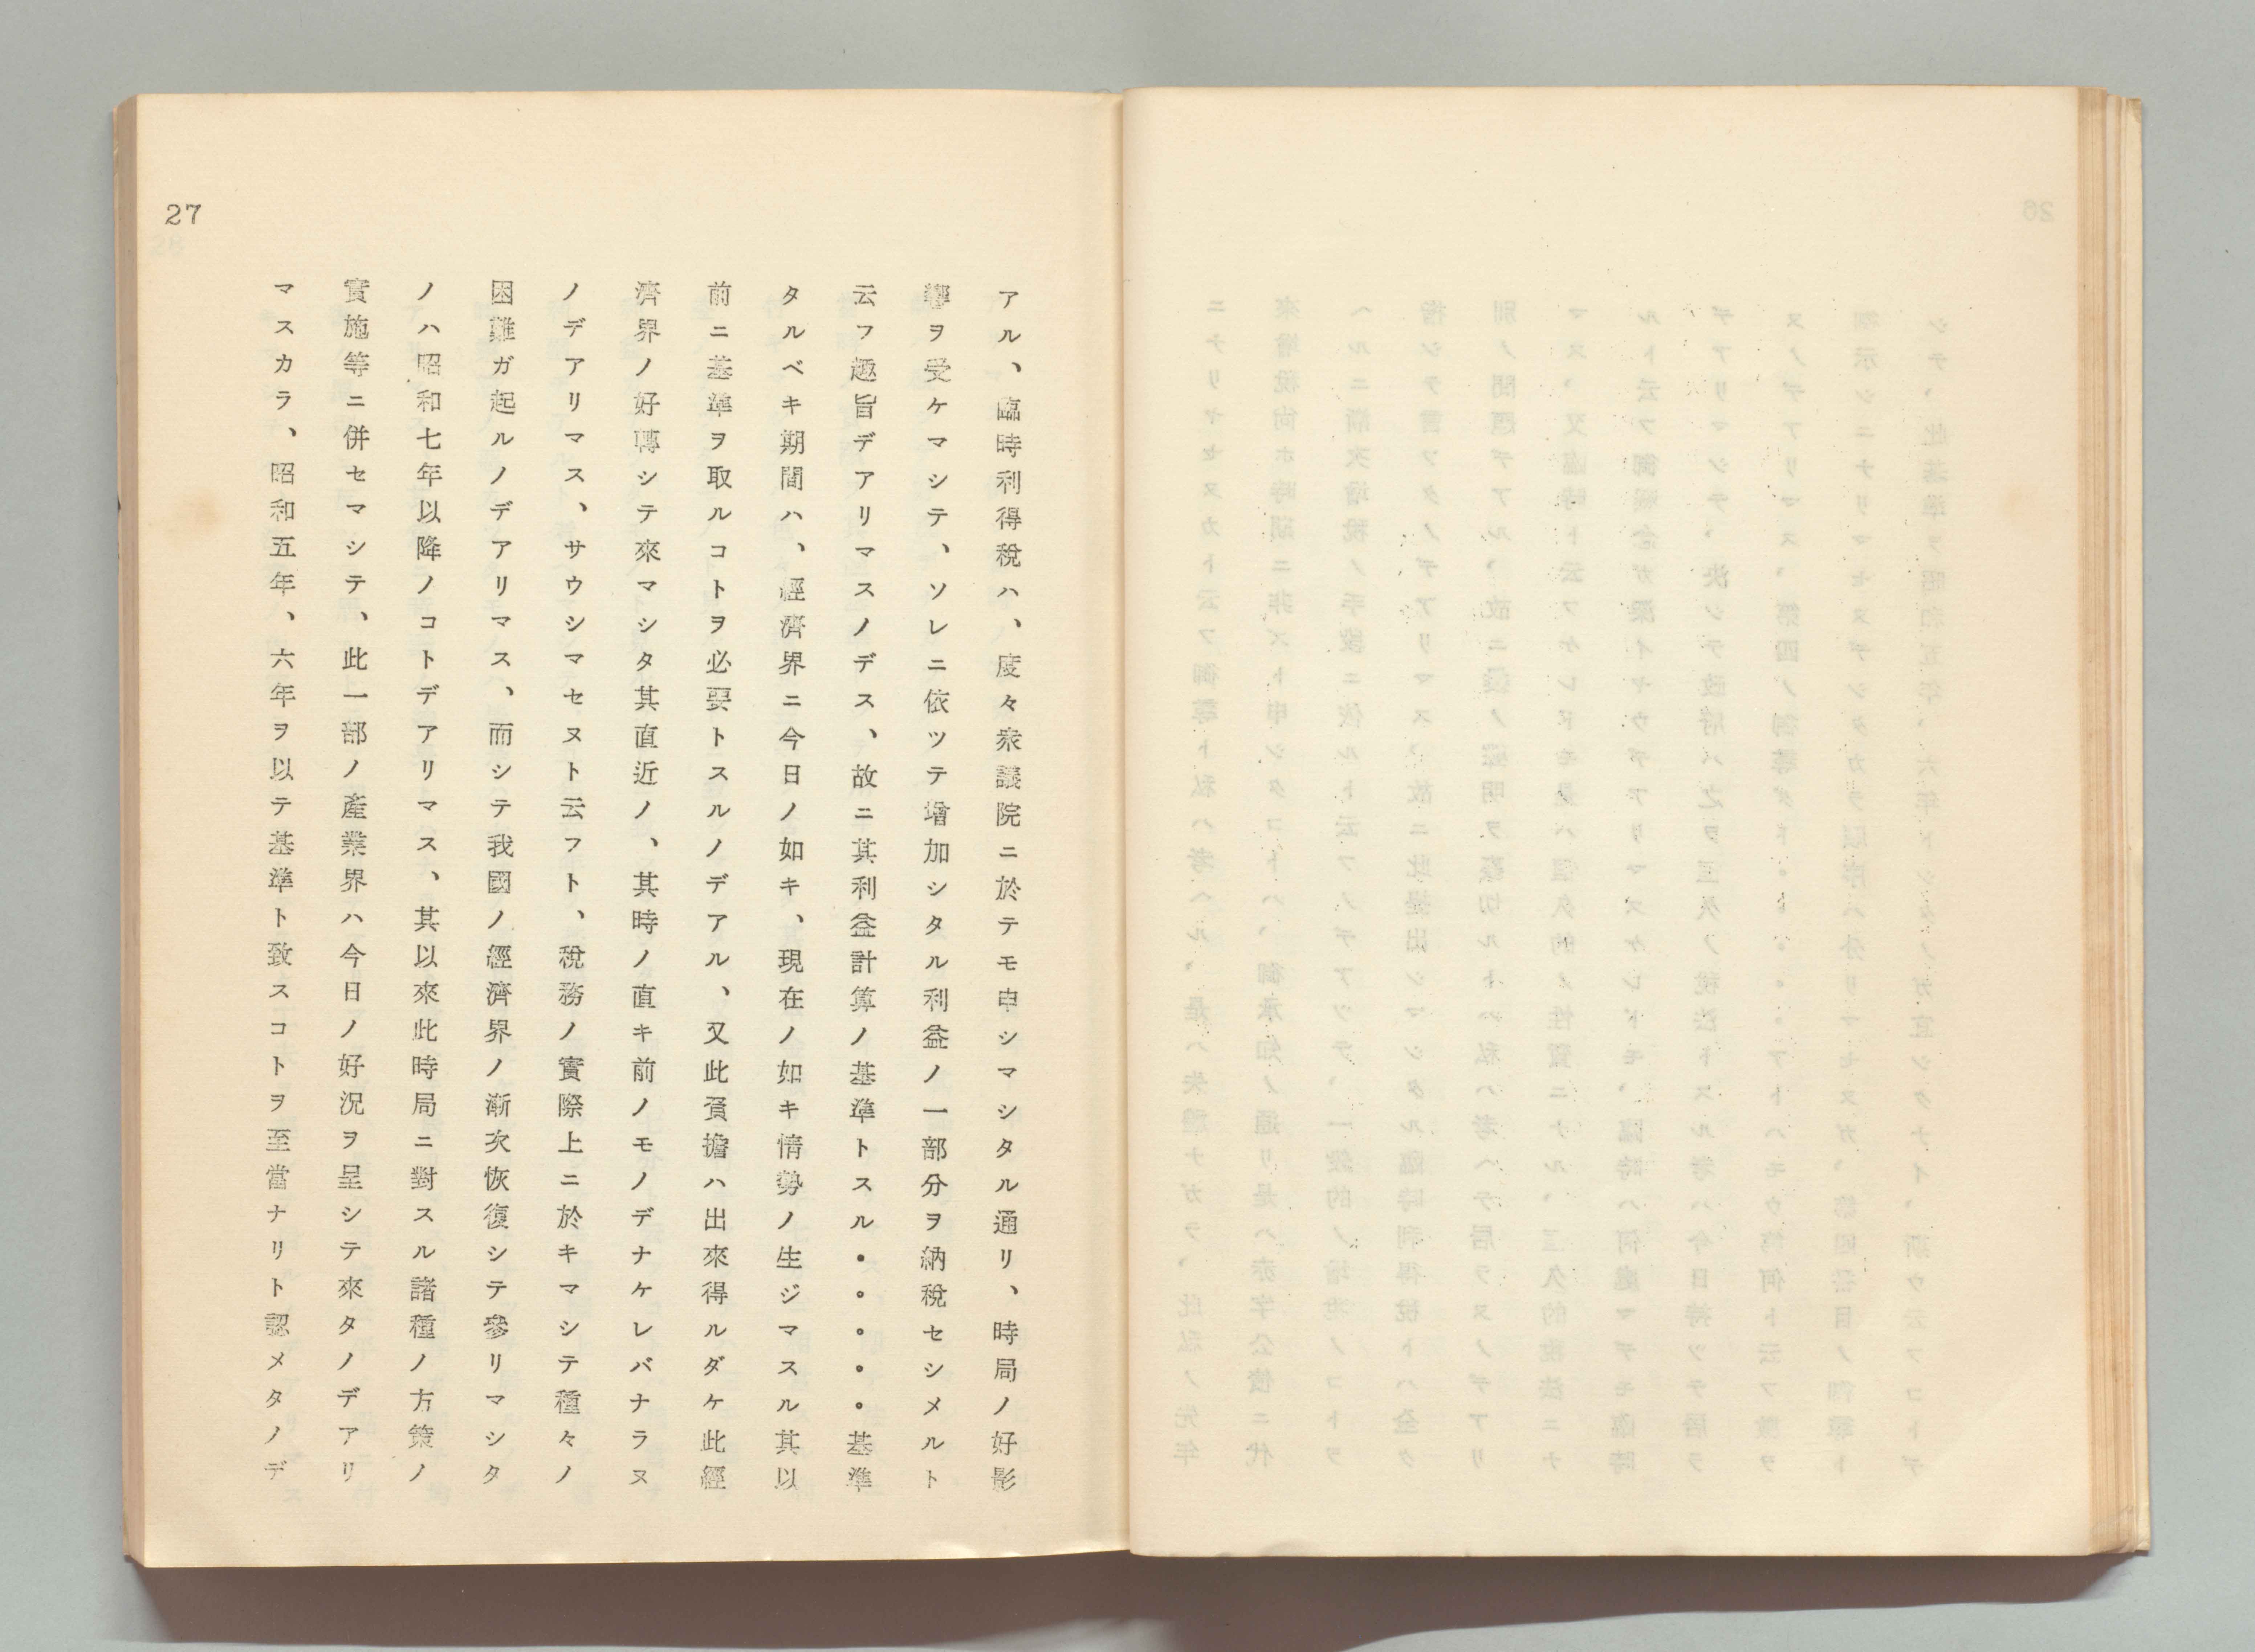 27
アル、臨時利得稅ハ、度々衆議院ニ於テモ申シマシタル通リ、時局ノ好影
響ヲ受ケマシテ、ソレニ依ツテ增加シタル利益ノ一部分ヲ納稅セシメルト
云フ趣旨デアリマスノデス、故ニ其利益計算ノ基準トスル・。。。。基準
タルベキ期間ハ、經濟界ニ今日ノ如キ、現在ノ如キ情勢ノ生ジマスル其以
前ニ基準ヲ取ルコトヲ必要トスルノデアル、又此負擔ハ出來得ルダケ此經
濟界ノ好轉シテ來マシタ其直近ノ、其時ノ直キ前ノモノデナケレバナラヌ
ノデアリマス、サウシマセヌト云フト、稅務ノ實際上ニ於キマシテ種々ノ
困難ガ起ルノデアリマス、而シテ我國ノ經濟界ノ漸次恢復シテ參リマシタ
ノハ昭和七年以降ノコトデアリマス、其以來此時局ニ對スル諸種ノ方策ノ
實施等ニ併セマシテ、此一部ノ產業界ハ今日ノ好況ヲ呈シテ來タノデアリ
マスカラ、昭和五年、六年ヲ以テ基準ト致スコトヲ至當ナリト認メタノデ